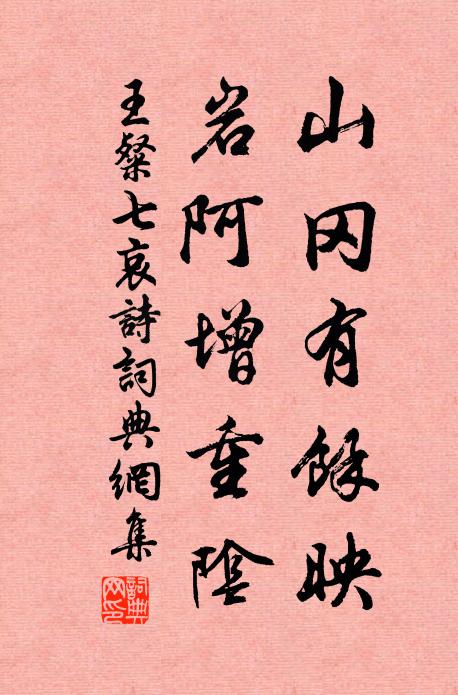 山冈有餘映
岩阿增重陰
王粲七哀詩詞典網集
詞典網印